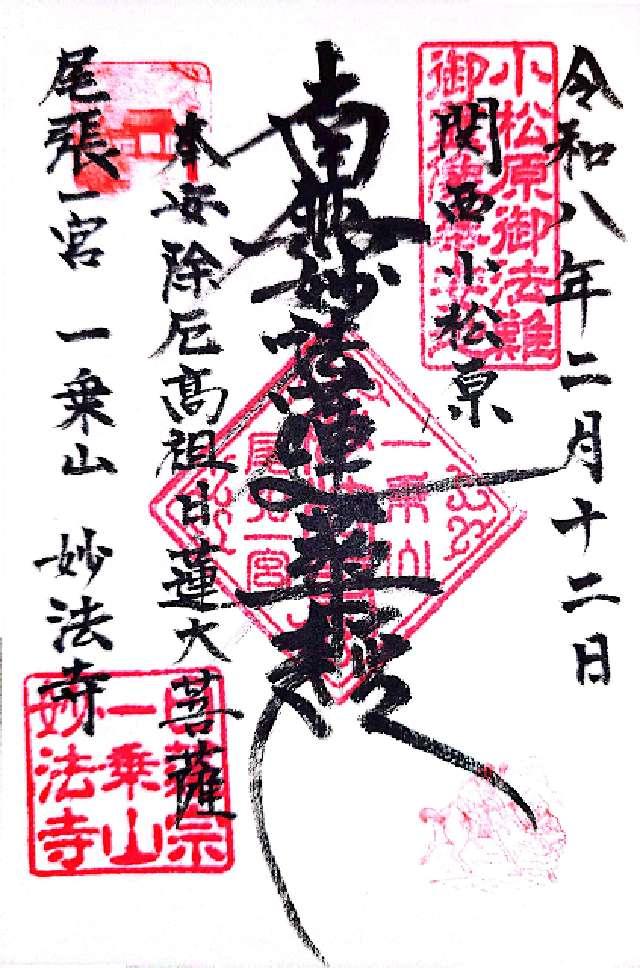 令和八年二月十二日
小松原御法難
関西小松原
南無妙法蓮華経
一乗山
尾張一宮
本安除厄高祖日蓮大菩薩
尾張一宮 一乗山 妙法寺
日蓮宗
一乗山
妙法寺